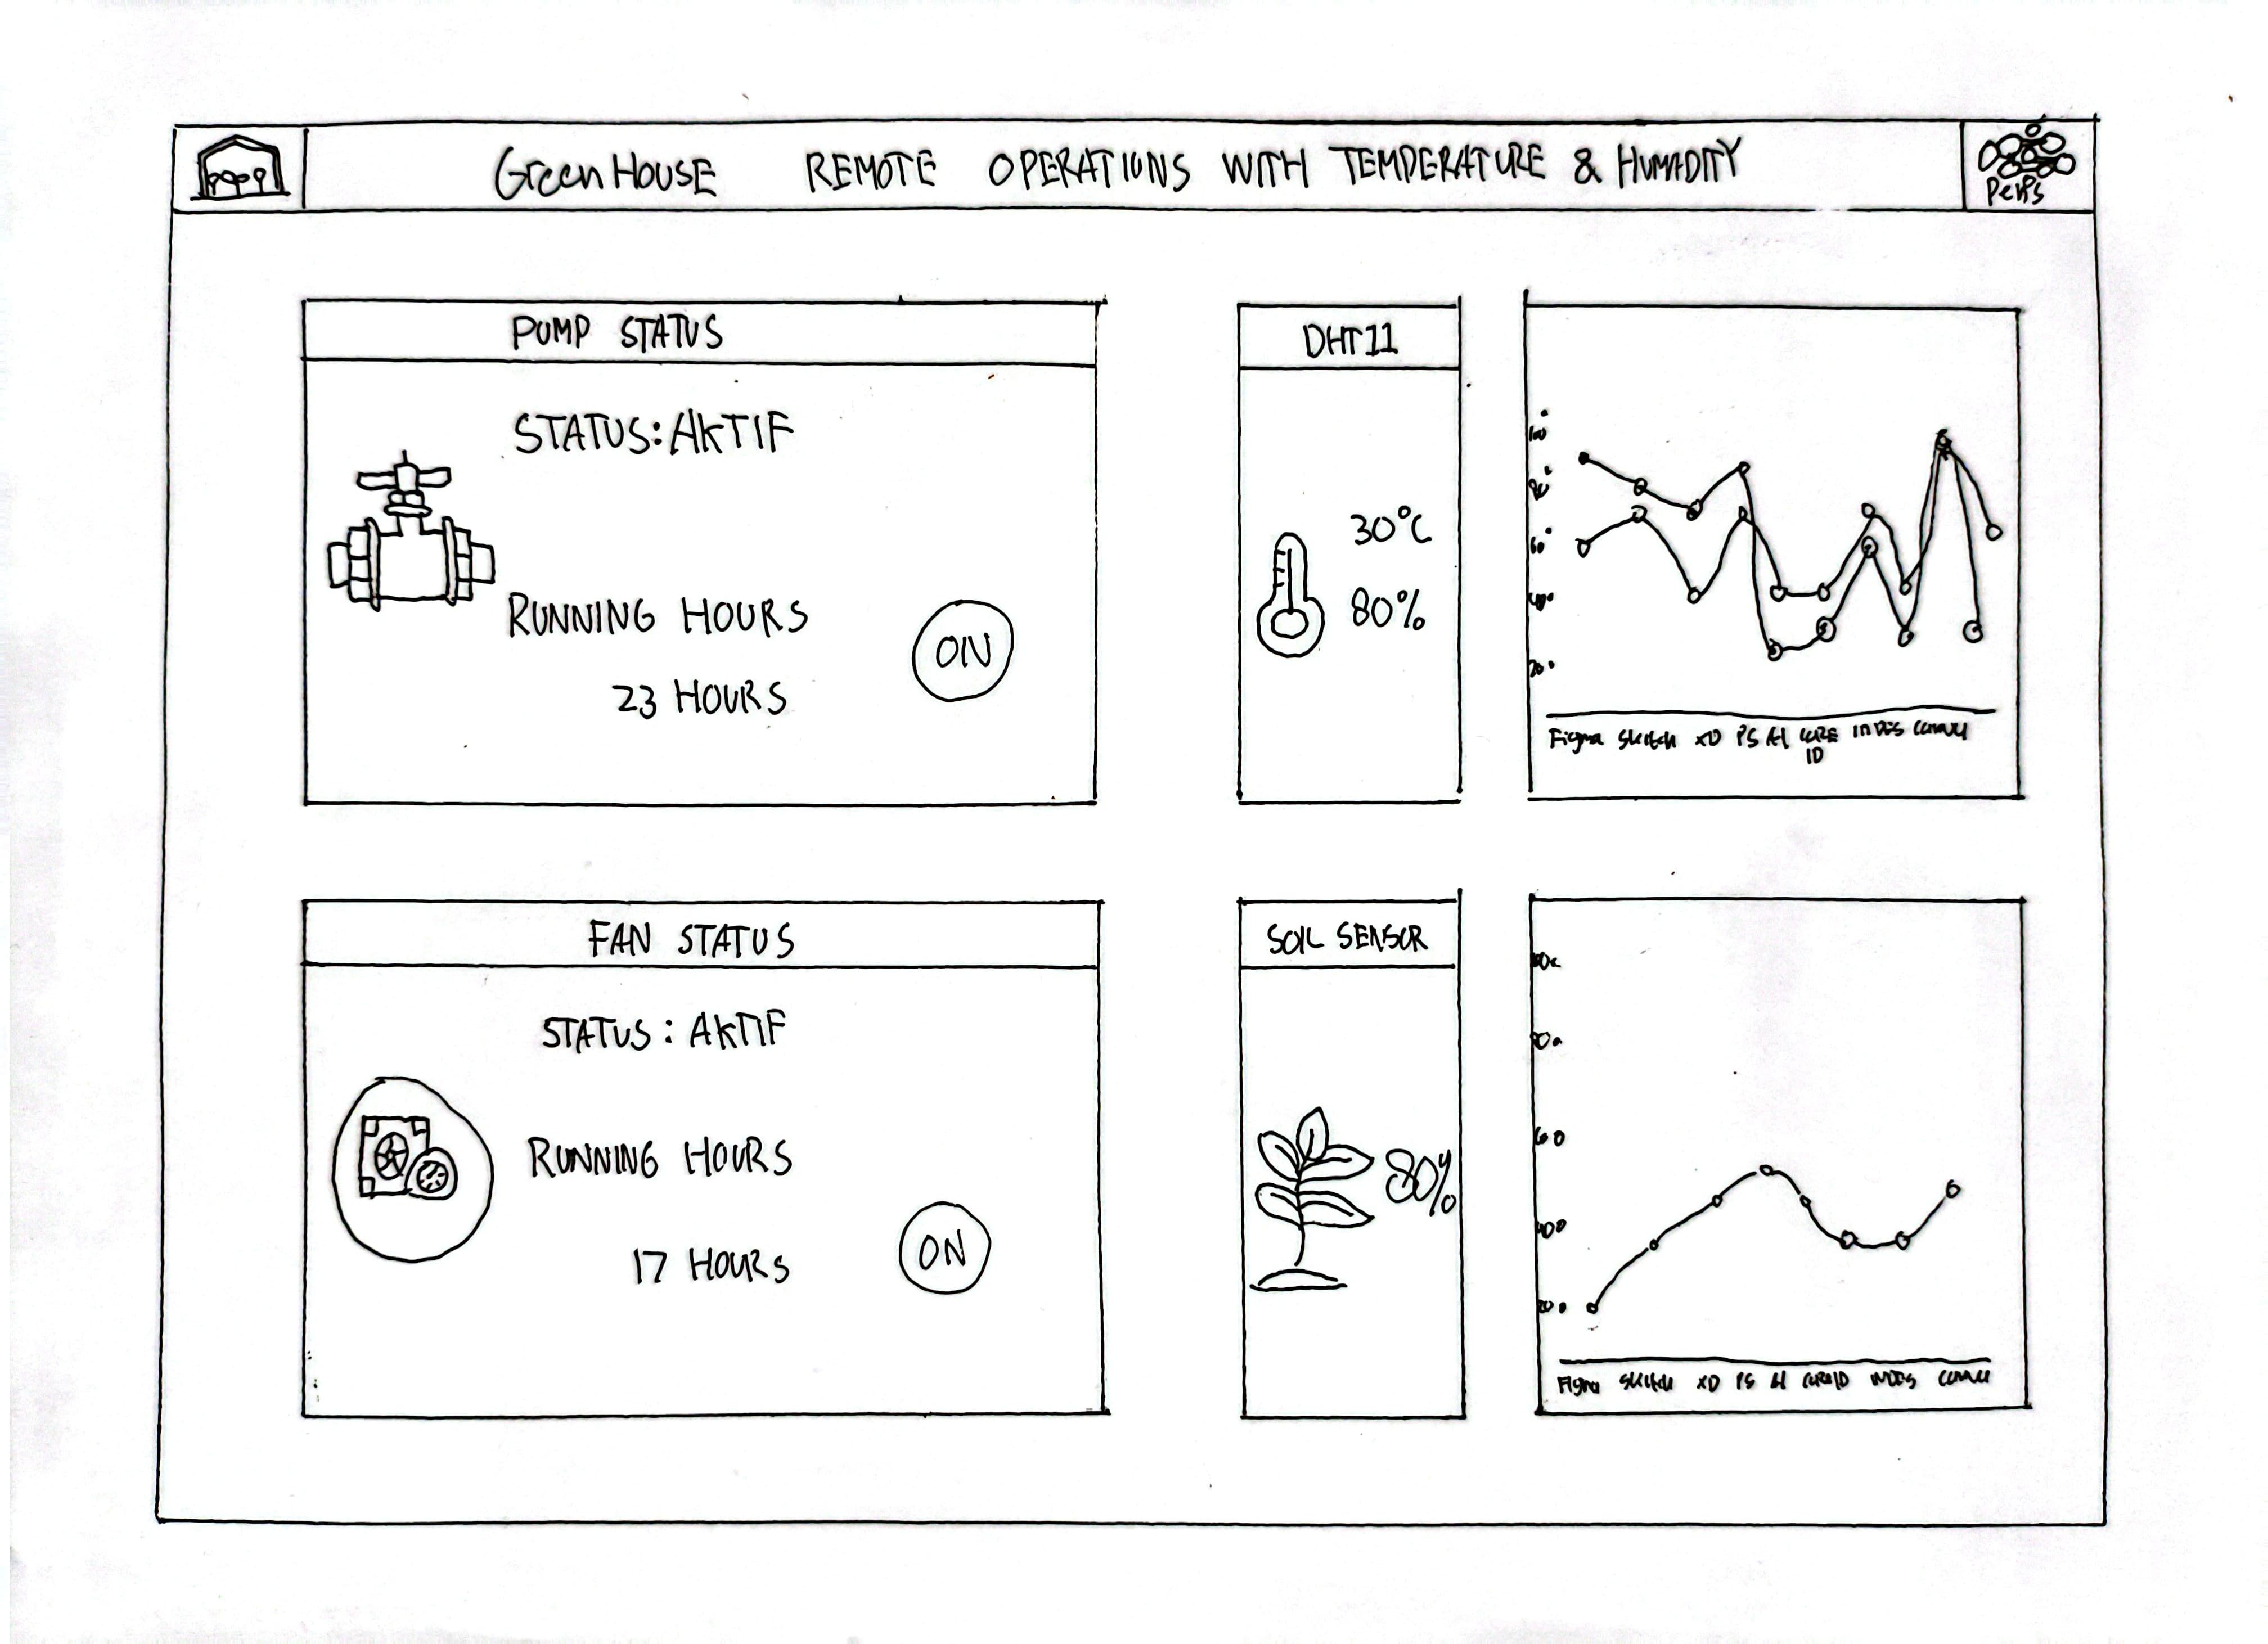 GreenHOUSE REMOTE OPERATIONS WITH TEMPERATURE & HUMIDITY
PUMP STATUS
STATUS: AKTIF
RUNNING HOURS
23 HOURS
ON
DHT11
30°C
80%
100
80
60
40
20
Figma Sketch XD PS AI
INDES
ID
FAN STATUS
STATUS: AKTIF
RUNNING HOURS
17 HOURS
ON
SOIL SENSOR
80%
60
400
Figma Sketch XD PS AI INDES